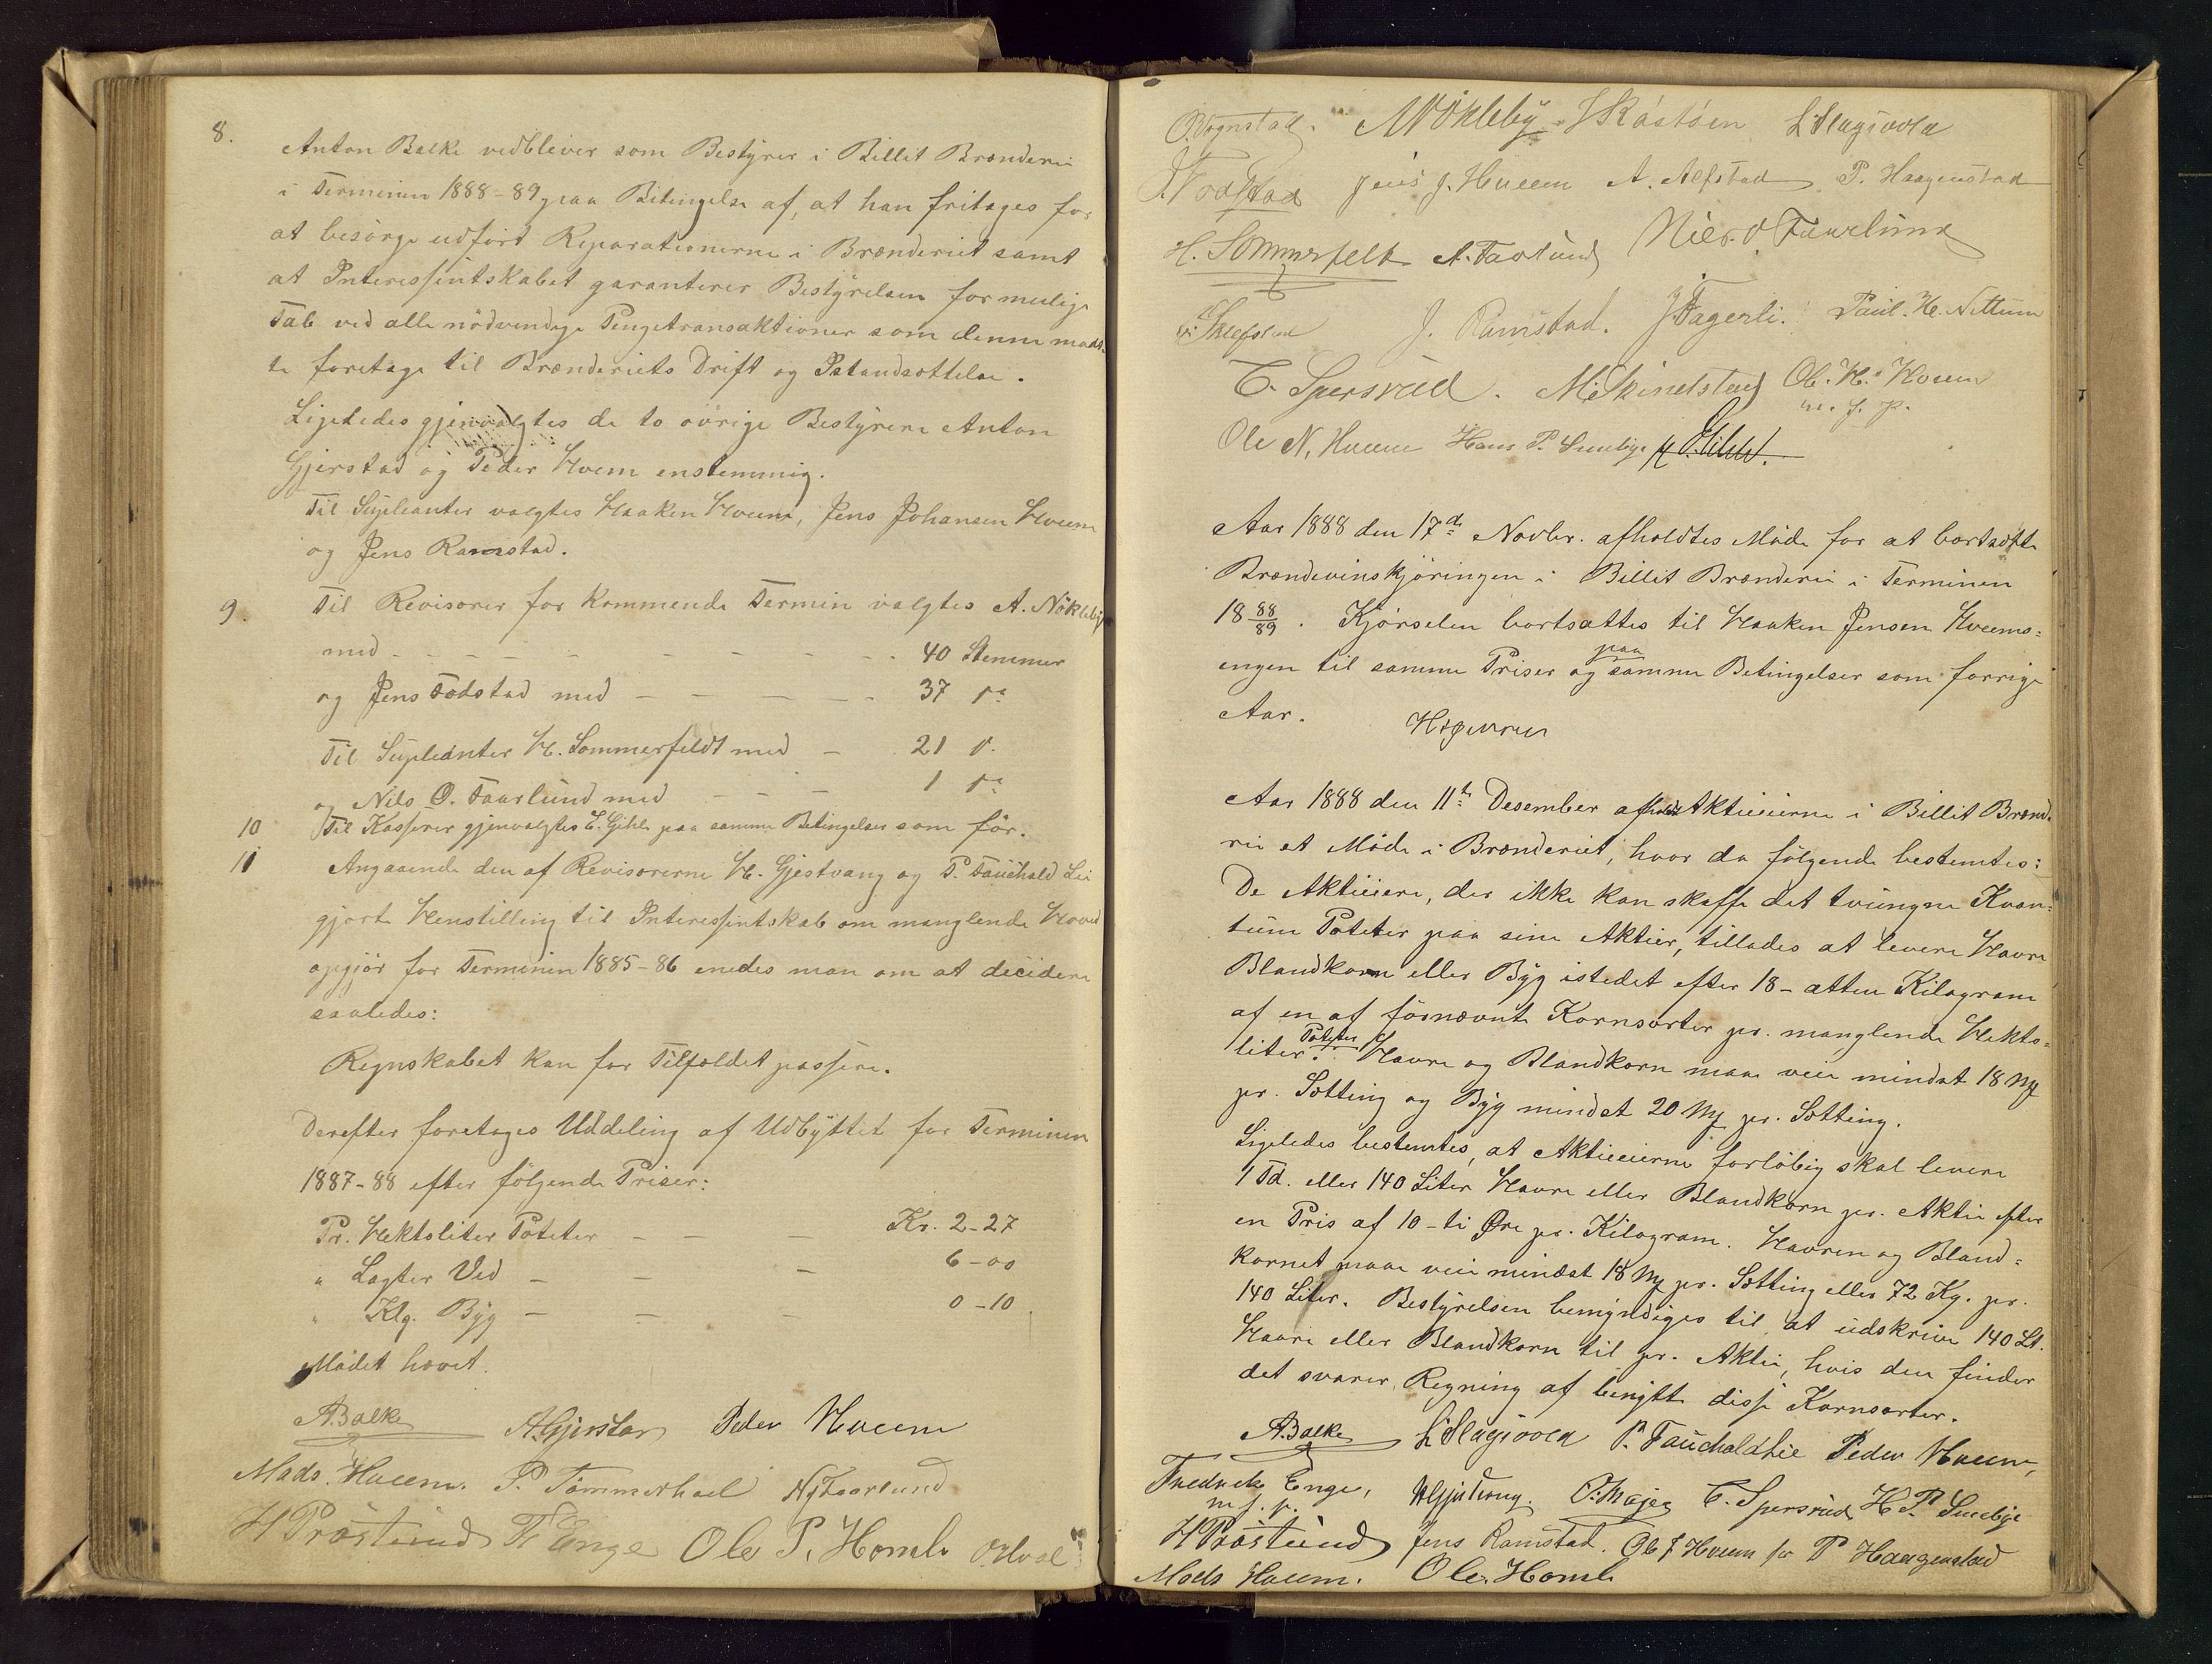 8.
Anton Balke vedbliver som Bestyrer i Billit Brænderi
i Terminen 1888-89 paa Betingelse af, at han fritages for
at besørge udført Reparationerne i Brænderiet samt
at Interessentskabet garanterer Bestyrelsen for mulige
Tab ved alle nödvendige Pengetransaktioner som denne maat-
te foretage til Brænderiets Drift og Istandsættelse.
Ligeledes gjenvalgtes de to øvrige Bestyrere Anton
Gjerstad og Peder Hveem enstemmig.
Til Supleanter valgtes Haaken Hveem, Jens Johansen Hveem
og Jens Ramstad.
9. Til Revisorer for kommende Termin valgtes A. Nökleby
med - - - - - - - 40 Stemmer
og Jens Fodstad med - - - - 37 do
Til Supleanter H. Sommerfeldt med - 21 do
og Nils O. Faarlund med - - - 1 do
10 Til Kasserer gjenvalgtes E. Gihle paa samme Betingelser som før.
11 Angaaende den af Revisorerne H. Gjestvang og P. Fauchald Lie
gjort Henstilling til Interessentskab om manglende Hoved
opgjør for Terminen 1885-86 enedes man om at decidere
saaledes:
Regnskabet kan for Tilfældet passere.
Derefter foretages Uddeling af Udbyttet for Terminen
1887-88 efter følgende Priser:
Pr. Hektoliter Poteter - - - Kr. 2-27
" Lagter Ved - - - 6-00
" Klg. Byg - - - 0-10
Mødet hævet.
ABalke A.Gjerstad Peder Hveem
Mads Hveem. P. Tømmerhoel N Faarlund
H Pröstuud F Enge Ole P. Homle
O.Vognstad. A Nökleby J Råstöen L Slagsvold
J Fodstad Jens J. Hveem A. Alfstad P. Haagenstad
H. Sommerfeldt A. Faarlund Niels O Faarlund
J. Ramstad. J Fagerli. Paul. H. Nettum
C. Spersrud. M. Skinelstad Ole. H. Hveem
m. f. p.
Ole N. Hveem Hans P. Smeby E. Gihle.
Aar 1888 den 17de Novbr. afholdtes Møde for at bortsætte
Brændevinskjøringen i Billit Brænderi i Terminen
18 88/89. Kjørselen bortsattes til Haaken Jensen Hveems-
engen til samme Priser og paa samme Betingelser som forrige
Aar.
Aar 1888 den 11te Desember afholdt Aktieeierne i Billit Brænde
rie et Møde i Brænderiet, hvor da følgende bestemtes:
De Aktieeiere, der ikke kan skaffe det tvungne Kvan-
tum Poteter paa sine Aktier, tillades at levere Havre
Blandkorn eller Byg istedet efter 18 - atten Kilogram
af en af førnævnte Kornsorter pr. manglende Hekto-
liter Poteter. Havre og Blandkorn maa veie mindst 18 Mk
pr. Sætting og Byg mindst 20 Mk pr. Sætting.
Ligeledes bestemtes, at Aktieeierne forløbig skal levere
1 Td. eller 140 Liter Havre eller Blandkorn pr. Aktie efter
en Pris af 10 - ti Øre pr. Kilogram. Havren og Bland-
kornet maa veie mindst 18 Mk pr. Sætting eller 72 Kg. pr.
140 Liter. Bestyrelsen bemyndiges til at udskrive 140 Lt.
Havre eller Blandkorn til pr. Aktie, hvis den finder
det svarer Regning af benytte disse Kornsorter.
A.Balke L Slagsvold P. Fauchald Lie Peder Hveem,
Fredrek Enge, H Gjestvang. C. Spersrud H P Smeby
m. f. p.
H Pröstuud Jens Ramstad. Ole J Hveem for P Haagenstad
Mads Hveem. Ole. Homle